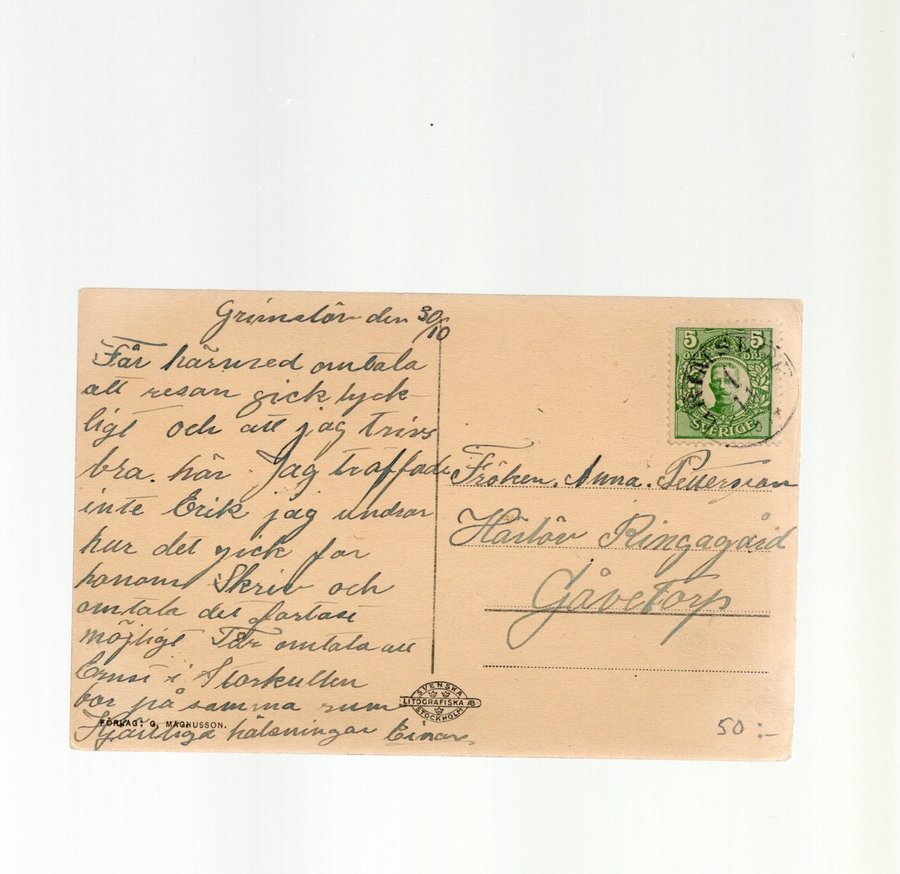 Grimslöv den 30/10
Får härmed omtala
att resan gick lyck
ligt och att jag trivs
bra. här. Jag traffade
inte Erik jag undrar
hur det gick för
honom Skriv och
omtala det fortast
möjligt Får omtala att
Ernst i Storkullen
bor på samma rum
Hjärtliga hälsningar Einar
FÖRLAG: G. MAGNUSSON.
SVENSKA
LITOGRAFISKA AB
STOCKHOLM
5 5
ÖRE ÖRE
SVERIGE
GRIMSLÖV
Fröken. Anna. Pettersson
Härlöv Ringagård
Gåvetorp
50:-